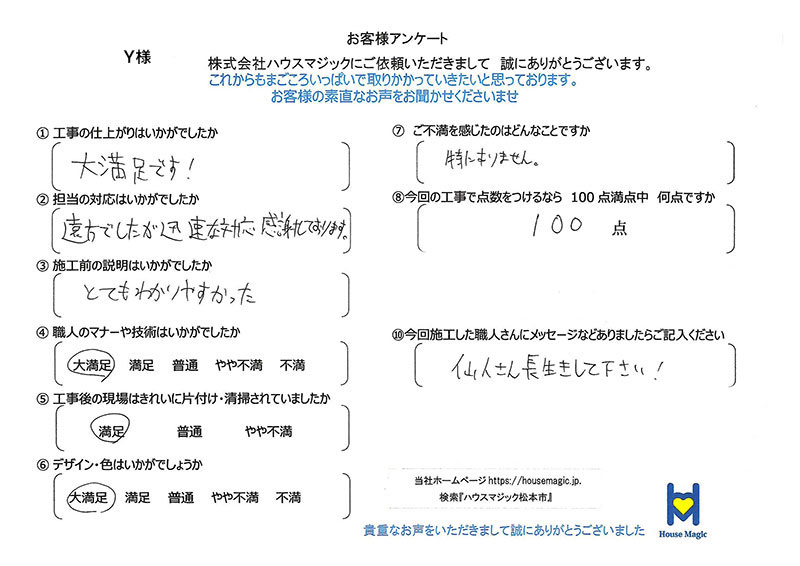 お客様アンケート
Y様
株式会社ハウスマジックにご依頼いただきまして 誠にありがとうございます。
これからもまごころいっぱいで取りかかっていきたいと思っております。
お客様の素直なお声をお聞かせくださいませ
① 工事の仕上がりはいかがでしたか
大満足です!
② 担当の対応はいかがでしたか
遠方でしたが迅速な対応 感謝しております。
③ 施工前の説明はいかがでしたか
とてもわかりやすかった
④ 職人のマナーや技術はいかがでしたか
大満足 満足 普通 やや不満 不満
⑤ 工事後の現場はきれいに片付け・清掃されていましたか
満足 普通 やや不満
⑥ デザイン・色はいかがでしょうか
大満足 満足 普通 やや不満 不満
⑦ ご不満を感じたのはどんなことですか
特にありません。
⑧今回の工事で点数をつけるなら 100点満点中 何点ですか
100 点
⑩今回施工した職人さんにメッセージなどありましたらご記入ください
仙人さん長生きして下さい!
当社ホームページ https://housemagic.jp.
検索『ハウスマジック松本市』
貴重なお声をいただきまして誠にありがとうございました
House Magic